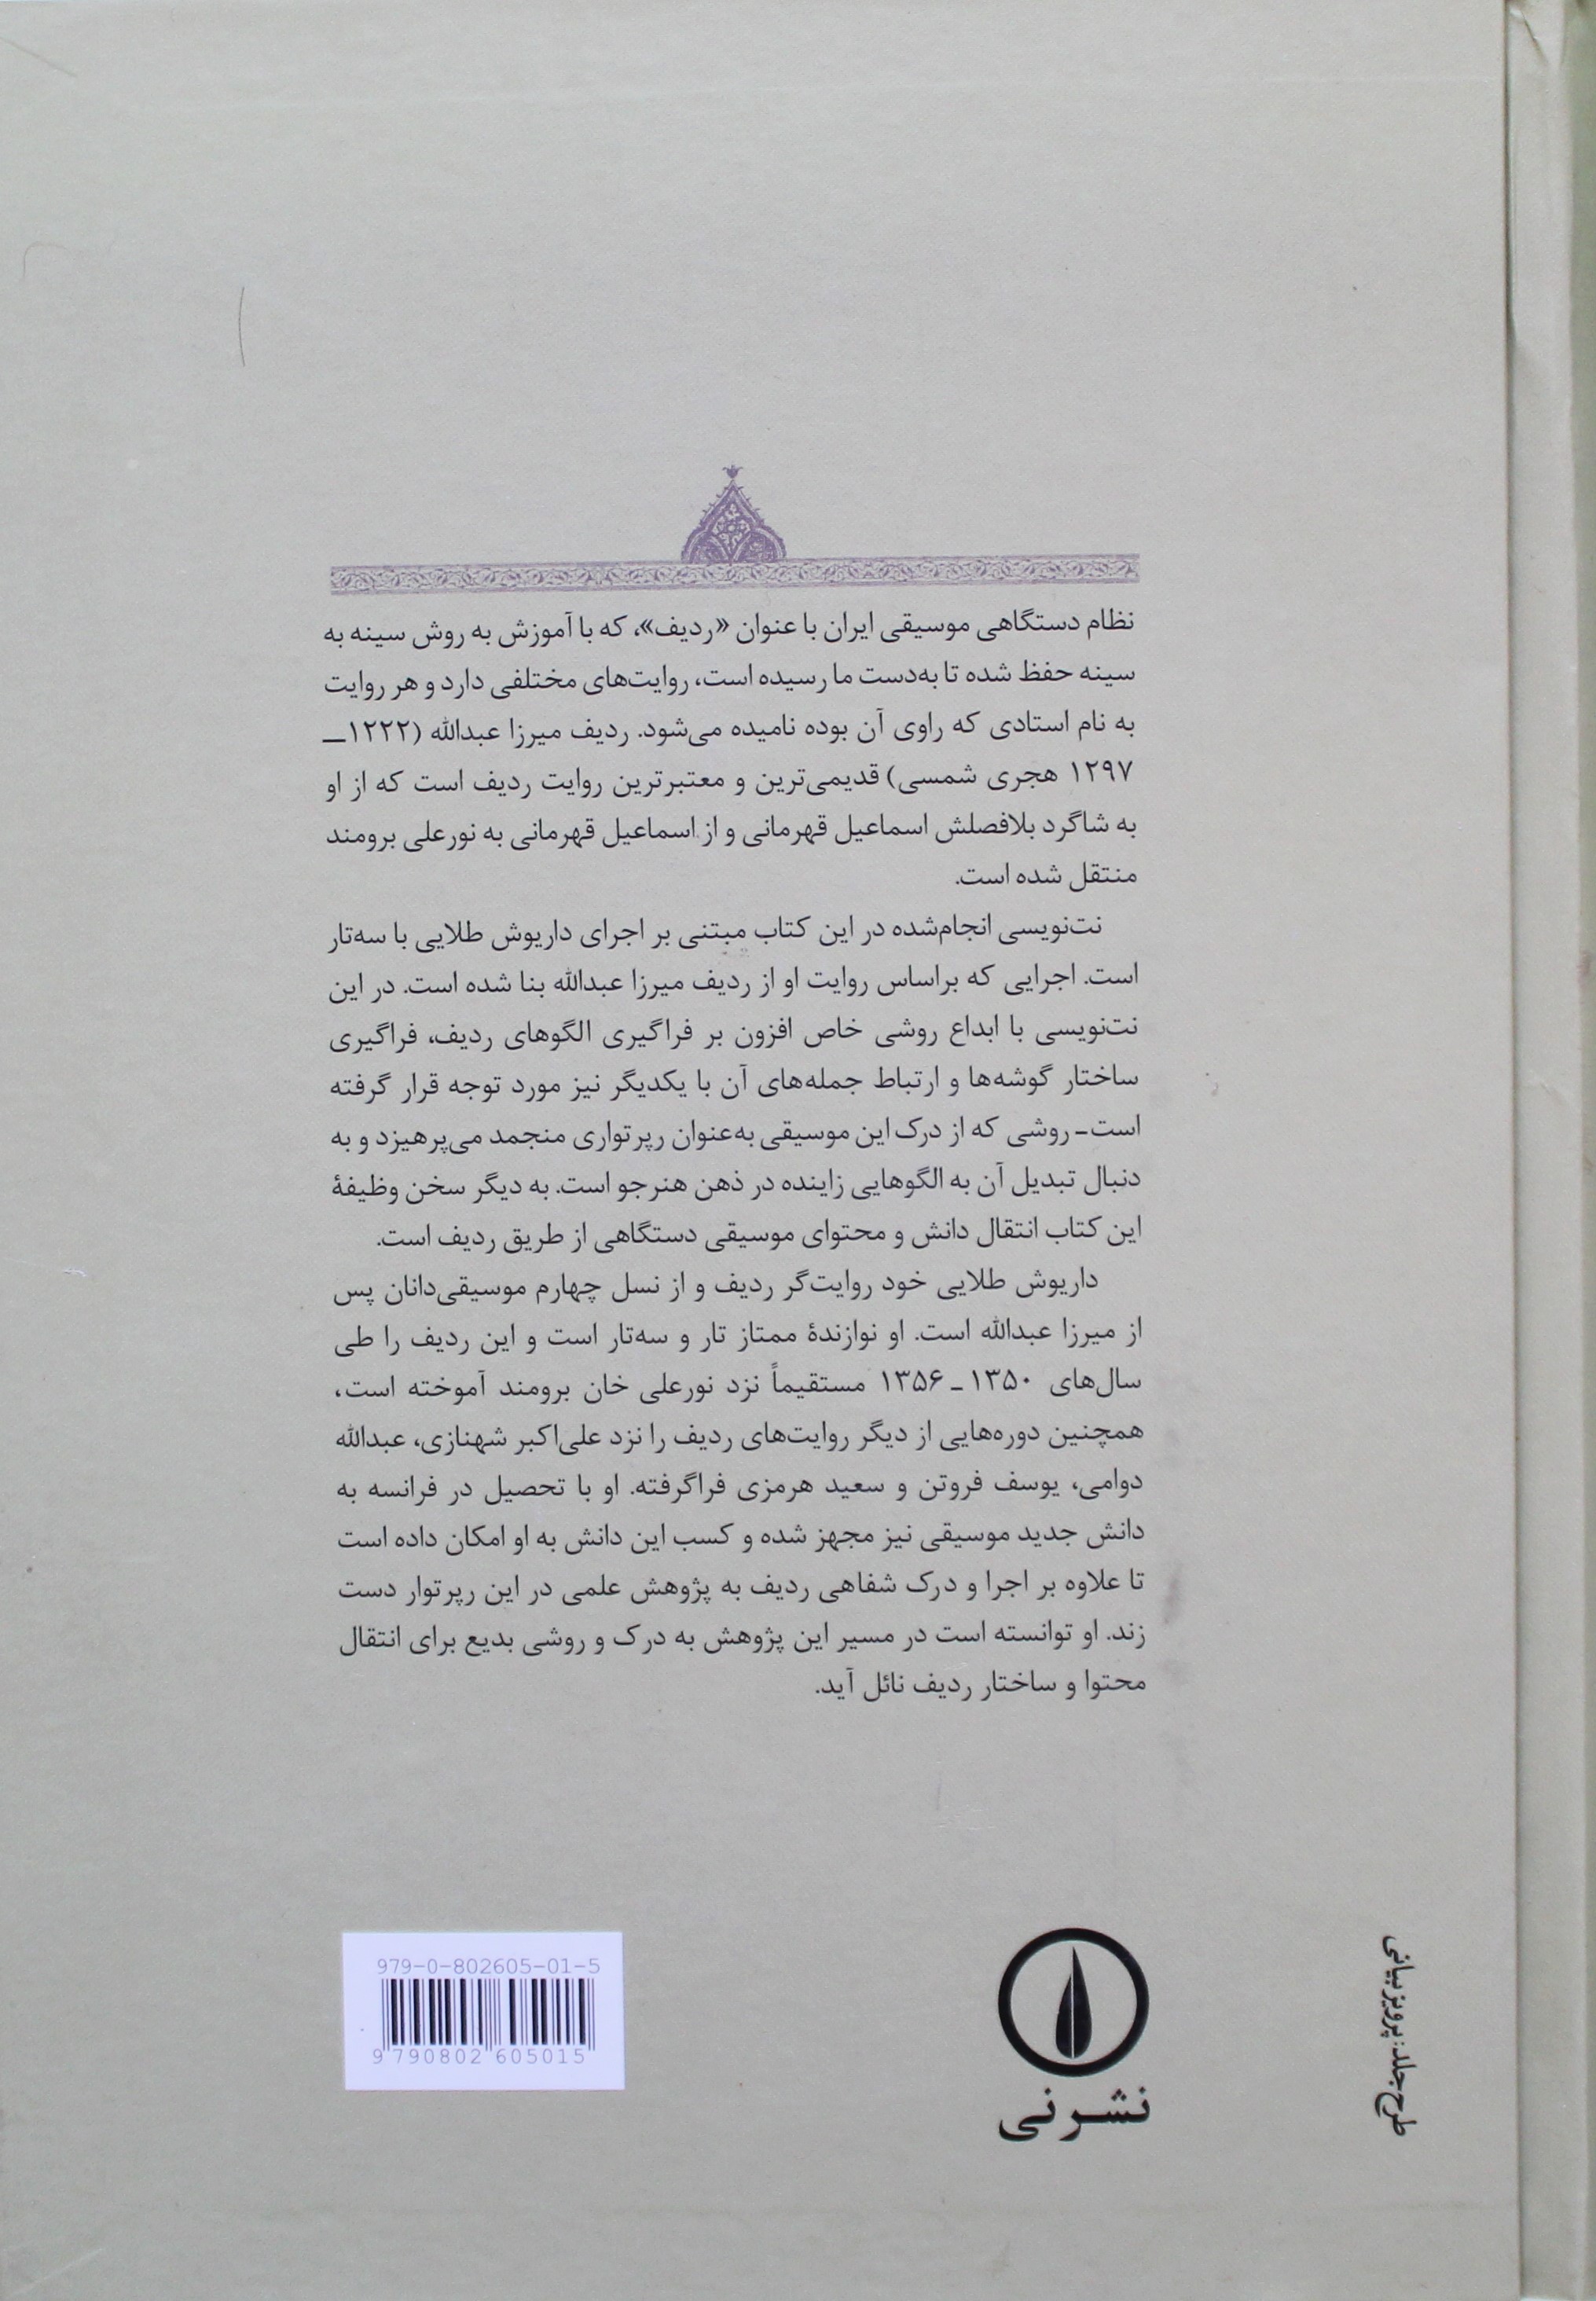 نظام دستگاهی موسیقی ایران با عنوان «ردیف»، که با آموزش به روش سینه به
سینه حفظ شده تا به‌دست ما رسیده است، روایت‌های مختلفی دارد و هر روایت
به نام استادی که راوی آن بوده نامیده می‌شود. ردیف میرزا عبدالله (۱۲۲۲ــ
۱۲۹۷ هجری شمسی) قدیمی‌ترین و معتبرترین روایت ردیف است که از او
به شاگرد بلافصلش اسماعیل قهرمانی و از اسماعیل قهرمانی به نورعلی برومند
منتقل شده است.
نت‌نویسی انجام‌شده در این کتاب مبتنی بر اجرای داریوش طلایی با سه‌تار
است. اجرایی که براساس روایت او از ردیف میرزا عبدالله بنا شده است. در این
نت‌نویسی با ابداع روشی خاص افزون بر فراگیری الگوهای ردیف، فراگیری
ساختار گوشه‌ها و ارتباط جمله‌های آن با یکدیگر نیز مورد توجه قرار گرفته
است ـ روشی که از درک این موسیقی به‌عنوان رپرتواری منجمد می‌پرهیزد و به
دنبال تبدیل آن به الگوهایی زاینده در ذهن هنرجو است. به دیگر سخن وظیفهٔ
این کتاب انتقال دانش و محتوای موسیقی دستگاهی از طریق ردیف است.
داریوش طلایی خود روایت‌گر ردیف و از نسل چهارم موسیقی‌دانان پس
از میرزا عبدالله است. او نوازندهٔ ممتاز تار و سه‌تار است و این ردیف را طی
سال‌های ۱۳۵۰ ـ ۱۳۵۶ مستقیماً نزد نورعلی خان برومند آموخته است،
همچنین دوره‌هایی از دیگر روایت‌های ردیف را نزد علی‌اکبر شهنازی، عبدالله
دوامی، یوسف فروتن و سعید هرمزی فراگرفته. او با تحصیل در فرانسه به
دانش جدید موسیقی نیز مجهز شده و کسب این دانش به او امکان داده است
تا علاوه بر اجرا و درک شفاهی ردیف به پژوهش علمی در این رپرتوار دست
زند. او توانسته است در مسیر این پژوهش به درک و روشی بدیع برای انتقال
محتوا و ساختار ردیف نائل آید.
طرح جلد: پرویز بیانی
نشر نی
979-0-802605-01-5
9 790802 605015